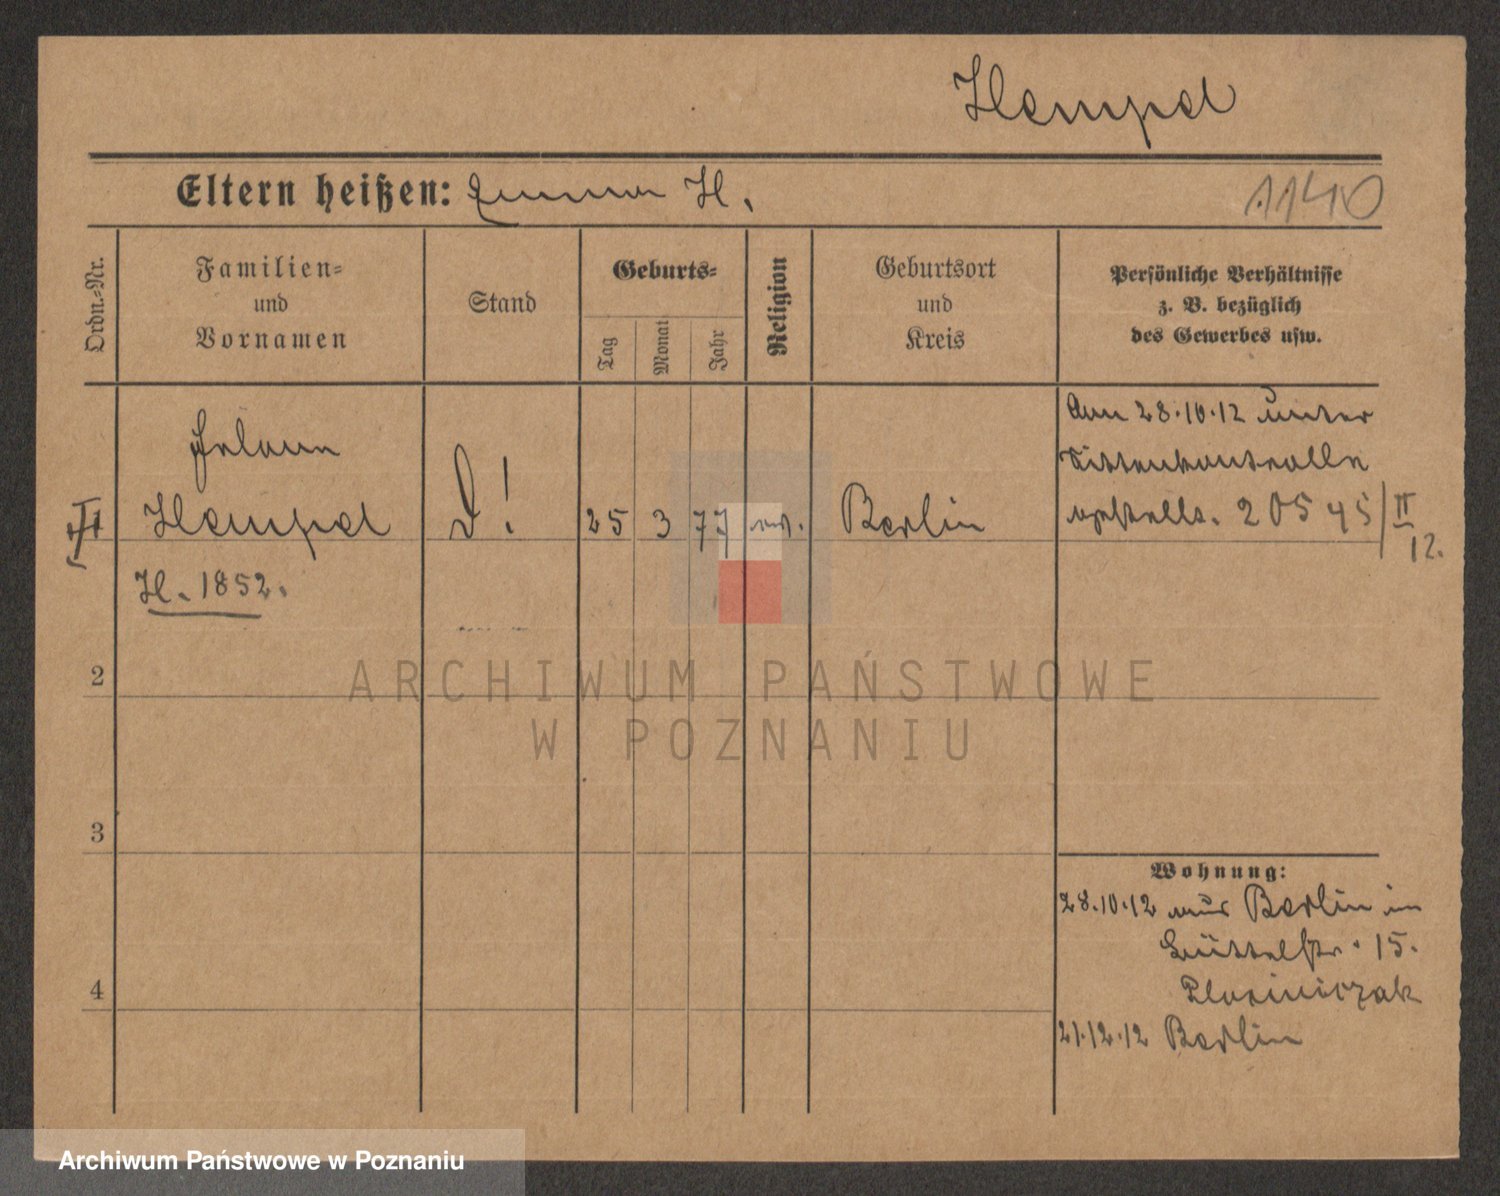 Hempel
Eltern heißen: Emma H.
1140
Ordn.-Nr.
Familien-
und
Vornamen
Stand
Geburts-
Tag
Monat
Jahr
Religion
Geburtsort
und
Kreis
Persönliche Verhältnisse
z. B. bezüglich
des Gewerbes usw.
Am 28.10.12 unter
Sittenkontrolle
gestellt. 20545/II
12.
Helene
Hempel
D! 25 3 77 ev. Berlin
H. 1852.
2
3
4
Wohnung:
28.10.12 aus Berlin in
Büttelstr. 15.
21.12.12 Berlin
ARCHIWUM PAŃSTWOWE
W POZNANIU
Archiwum Państwowe w Poznaniu